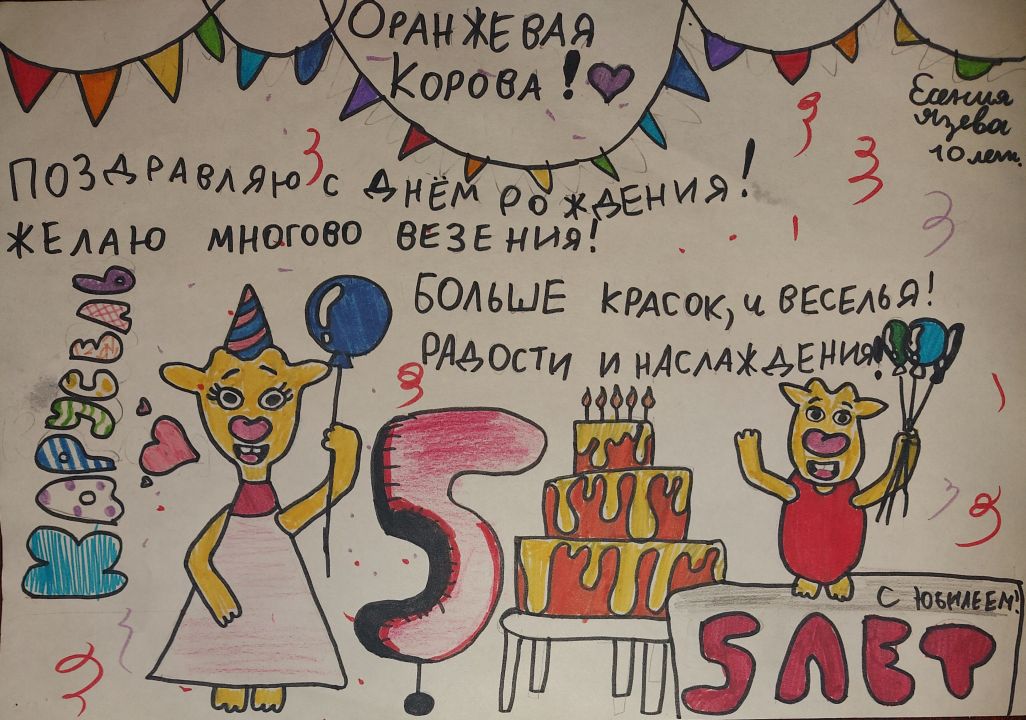 ОРАНЖЕВАЯ
КОРОВА!
Есения
Язева
10 лет.
ПОЗДРАВЛЯЮ С ДНЁМ РОЖДЕНИЯ!
ЖЕЛАЮ МНОГОВО ВЕЗЕНИЯ!
БОЛЬШЕ КРАСОК, И ВЕСЕЛЬЯ!
РАДОСТИ И НАСЛАЖДЕНИЯ!
КАРУСЕЛЬ
5
С ЮБИЛЕЕМ!
5 ЛЕТ